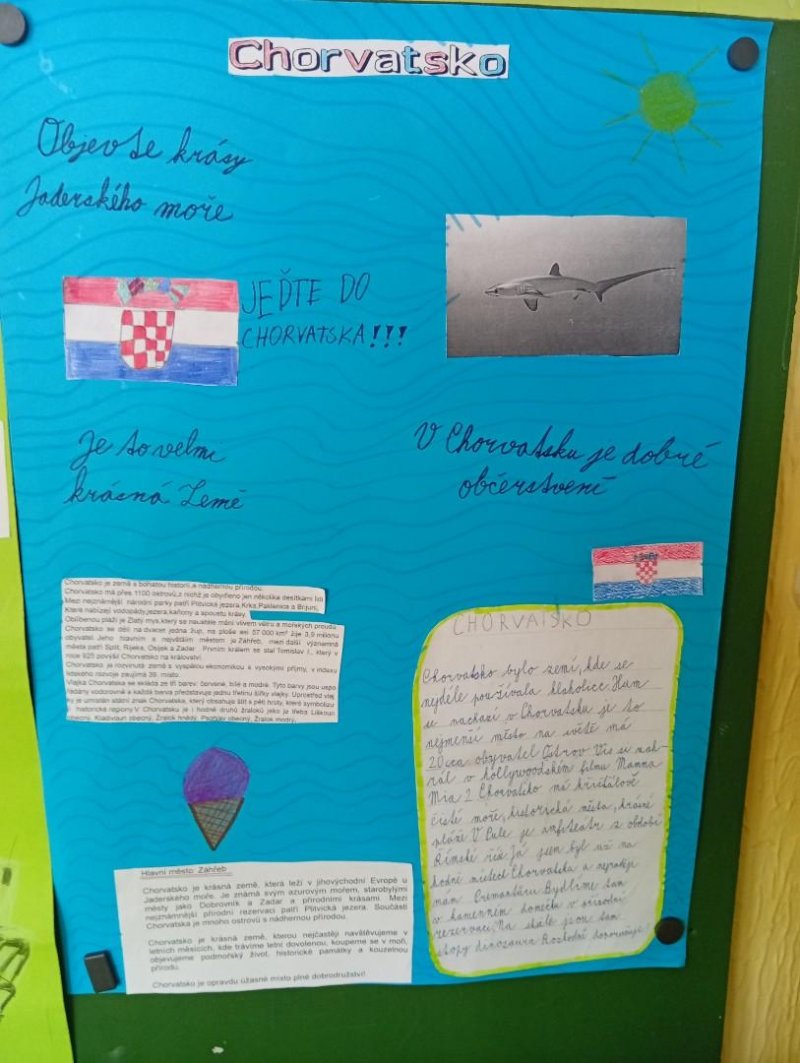 Chorvatsko
Objevte krásy
Jaderského moře
JEĎTE DO
CHORVATSKA!!!
Je to velmi
krásná Země
V Chorvatsku je dobré
občerstvení
Chorvatsko je země s bohatou historií a nádhernou přírodou.
Chorvatsko má přes 1100 ostrovů, z nichž je obydleno jen několika desítkami lidí
Mezi nejznámější národní parky patří Plitvická jezera, Krka, Paklenica a Brijuni,
Které nabízejí vodopády, jezera, kaňony a spoustu krásy.
Oblíbenou pláží je Zlatý mys, který se neustále mění vlivem větru a mořských proudů
Chorvatsko se dělí na dvacet jedna žup, na ploše asi 57 000 km² žije 3,9 milionu
obyvatel. Jeho hlavním a největším městem je Záhřeb, mezi další významná
města patří Split, Rijeka, Osijek a Zadar. Prvním králem se stal Tomislav I., který v
roce 925 povýšil Chorvatsko na království.
Chorvatsko je rozvinutá země s vyspělou ekonomikou a vysokými příjmy, v indexu
lidského rozvoje zaujímá 39. místo.
Vlajka Chorvatska se skládá ze tří barev: červené, bílé a modré. Tyto barvy jsou uspo
řádány vodorovně a každá barva představuje jednu třetinu šířky vlajky. Uprostřed vlaj
ky je umístěn státní znak Chorvatska, který obsahuje štít s pěti hrsty, které symbolizu
historické regiony. V Chorvatsku je i hodně druhů žraloků jako je třeba Liškoun
obecný, Kladivoun obecný, Žralok hnědý, Žralok modrý.
Hlavní město: Zahřeb
Chorvatsko je krásná země, která leží v jihovýchodní Evropě u
Jaderského moře. Je známá svým azurovým mořem, starobylými
městy jako Dobrovnik a Zadar a přírodními krásami. Mezi
nejznámnější přírodní rezervaci patří Plitvická jezera. Součástí
Chorvatska je mnoho ostrovů s nádhernou přírodou.
Chorvatsko je krásná země, kterou nejčastěji navštěvujeme v
letních měsících, kde trávíme letní dovolenou, koupeme se v moři,
objevujeme podmořský život, historické památky a kouzelnou
přírodu.
Chorvatsko je opravdu úžasné místo plné dobrodružství!
CHORVATSKO
Chorvatsko bylo zemí, kde se
nejdéle používala hlaholice. Hum
se nachází v Chorvatsku je to
nejmenší město na světě má
20 cca obyvatel Ostrov Vis se nak-
rál v hollywoodském filmu Mamma
Mia 2 Chorvatsko má křišťálově
čisté moře, historická města, krásné
pláže V Pule je amfiteátr z období
Římské říše. Já jsem byl už na
hodně místech Chorvatska a nejradši
mám Premanturu. Bydlíme tam
v kamenném domečku v přírodní
rezervaci. Na skále jsou tam
stopy dinosaura. Rozhodně doporučuji!